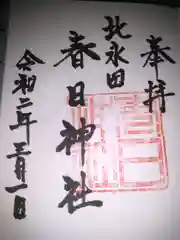 奉拝
北永田
春日神社
令和二年三月一日